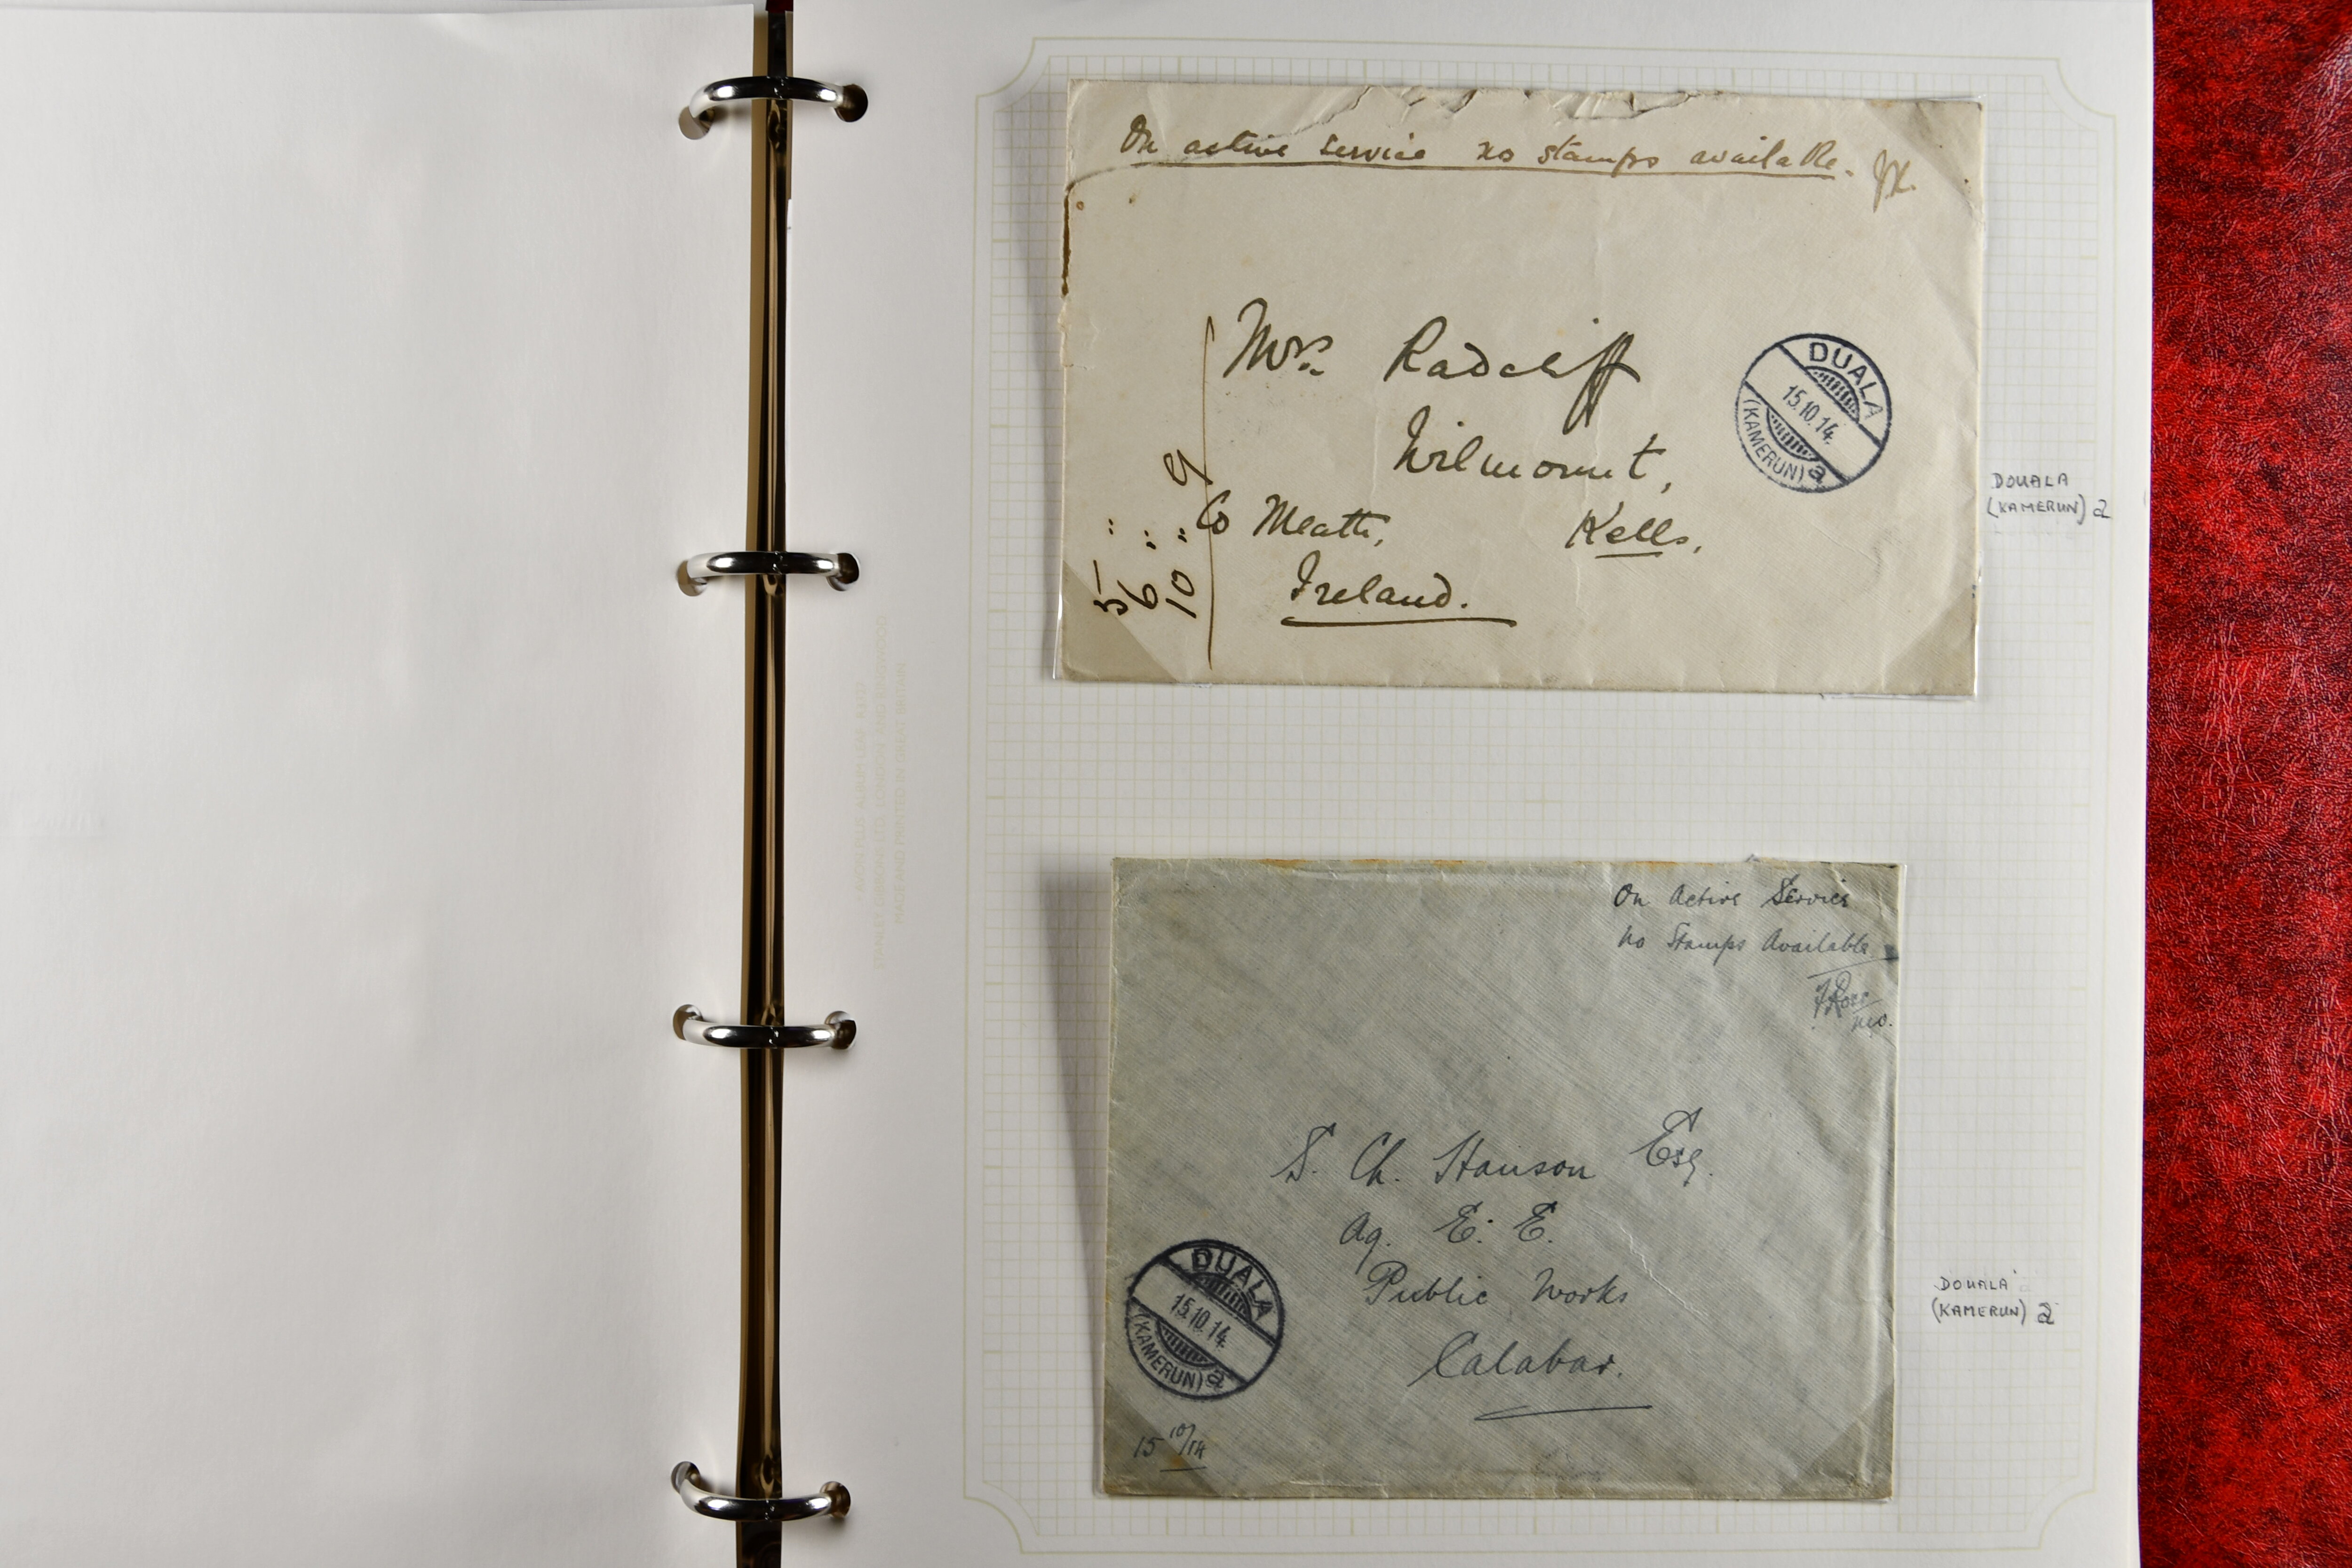 On active service no stamps available.
Mrs. Radcliff
Wilmount,
Co Meath, Kells,
Ireland.
5
6
10 .. 9
DUALA
15.10.14.
(KAMERUN) a
DOUALA
(KAMERUN) a
On Active Service
No Stamps Available
S. Ch. Hanson Esq.
Ag. E. E.
Public Works
Calabar.
DUALA
15.10.14.
(KAMERUN) a
15 10/14
DOUALA
(KAMERUN) a
MADE AND PRINTED IN GREAT BRITAIN